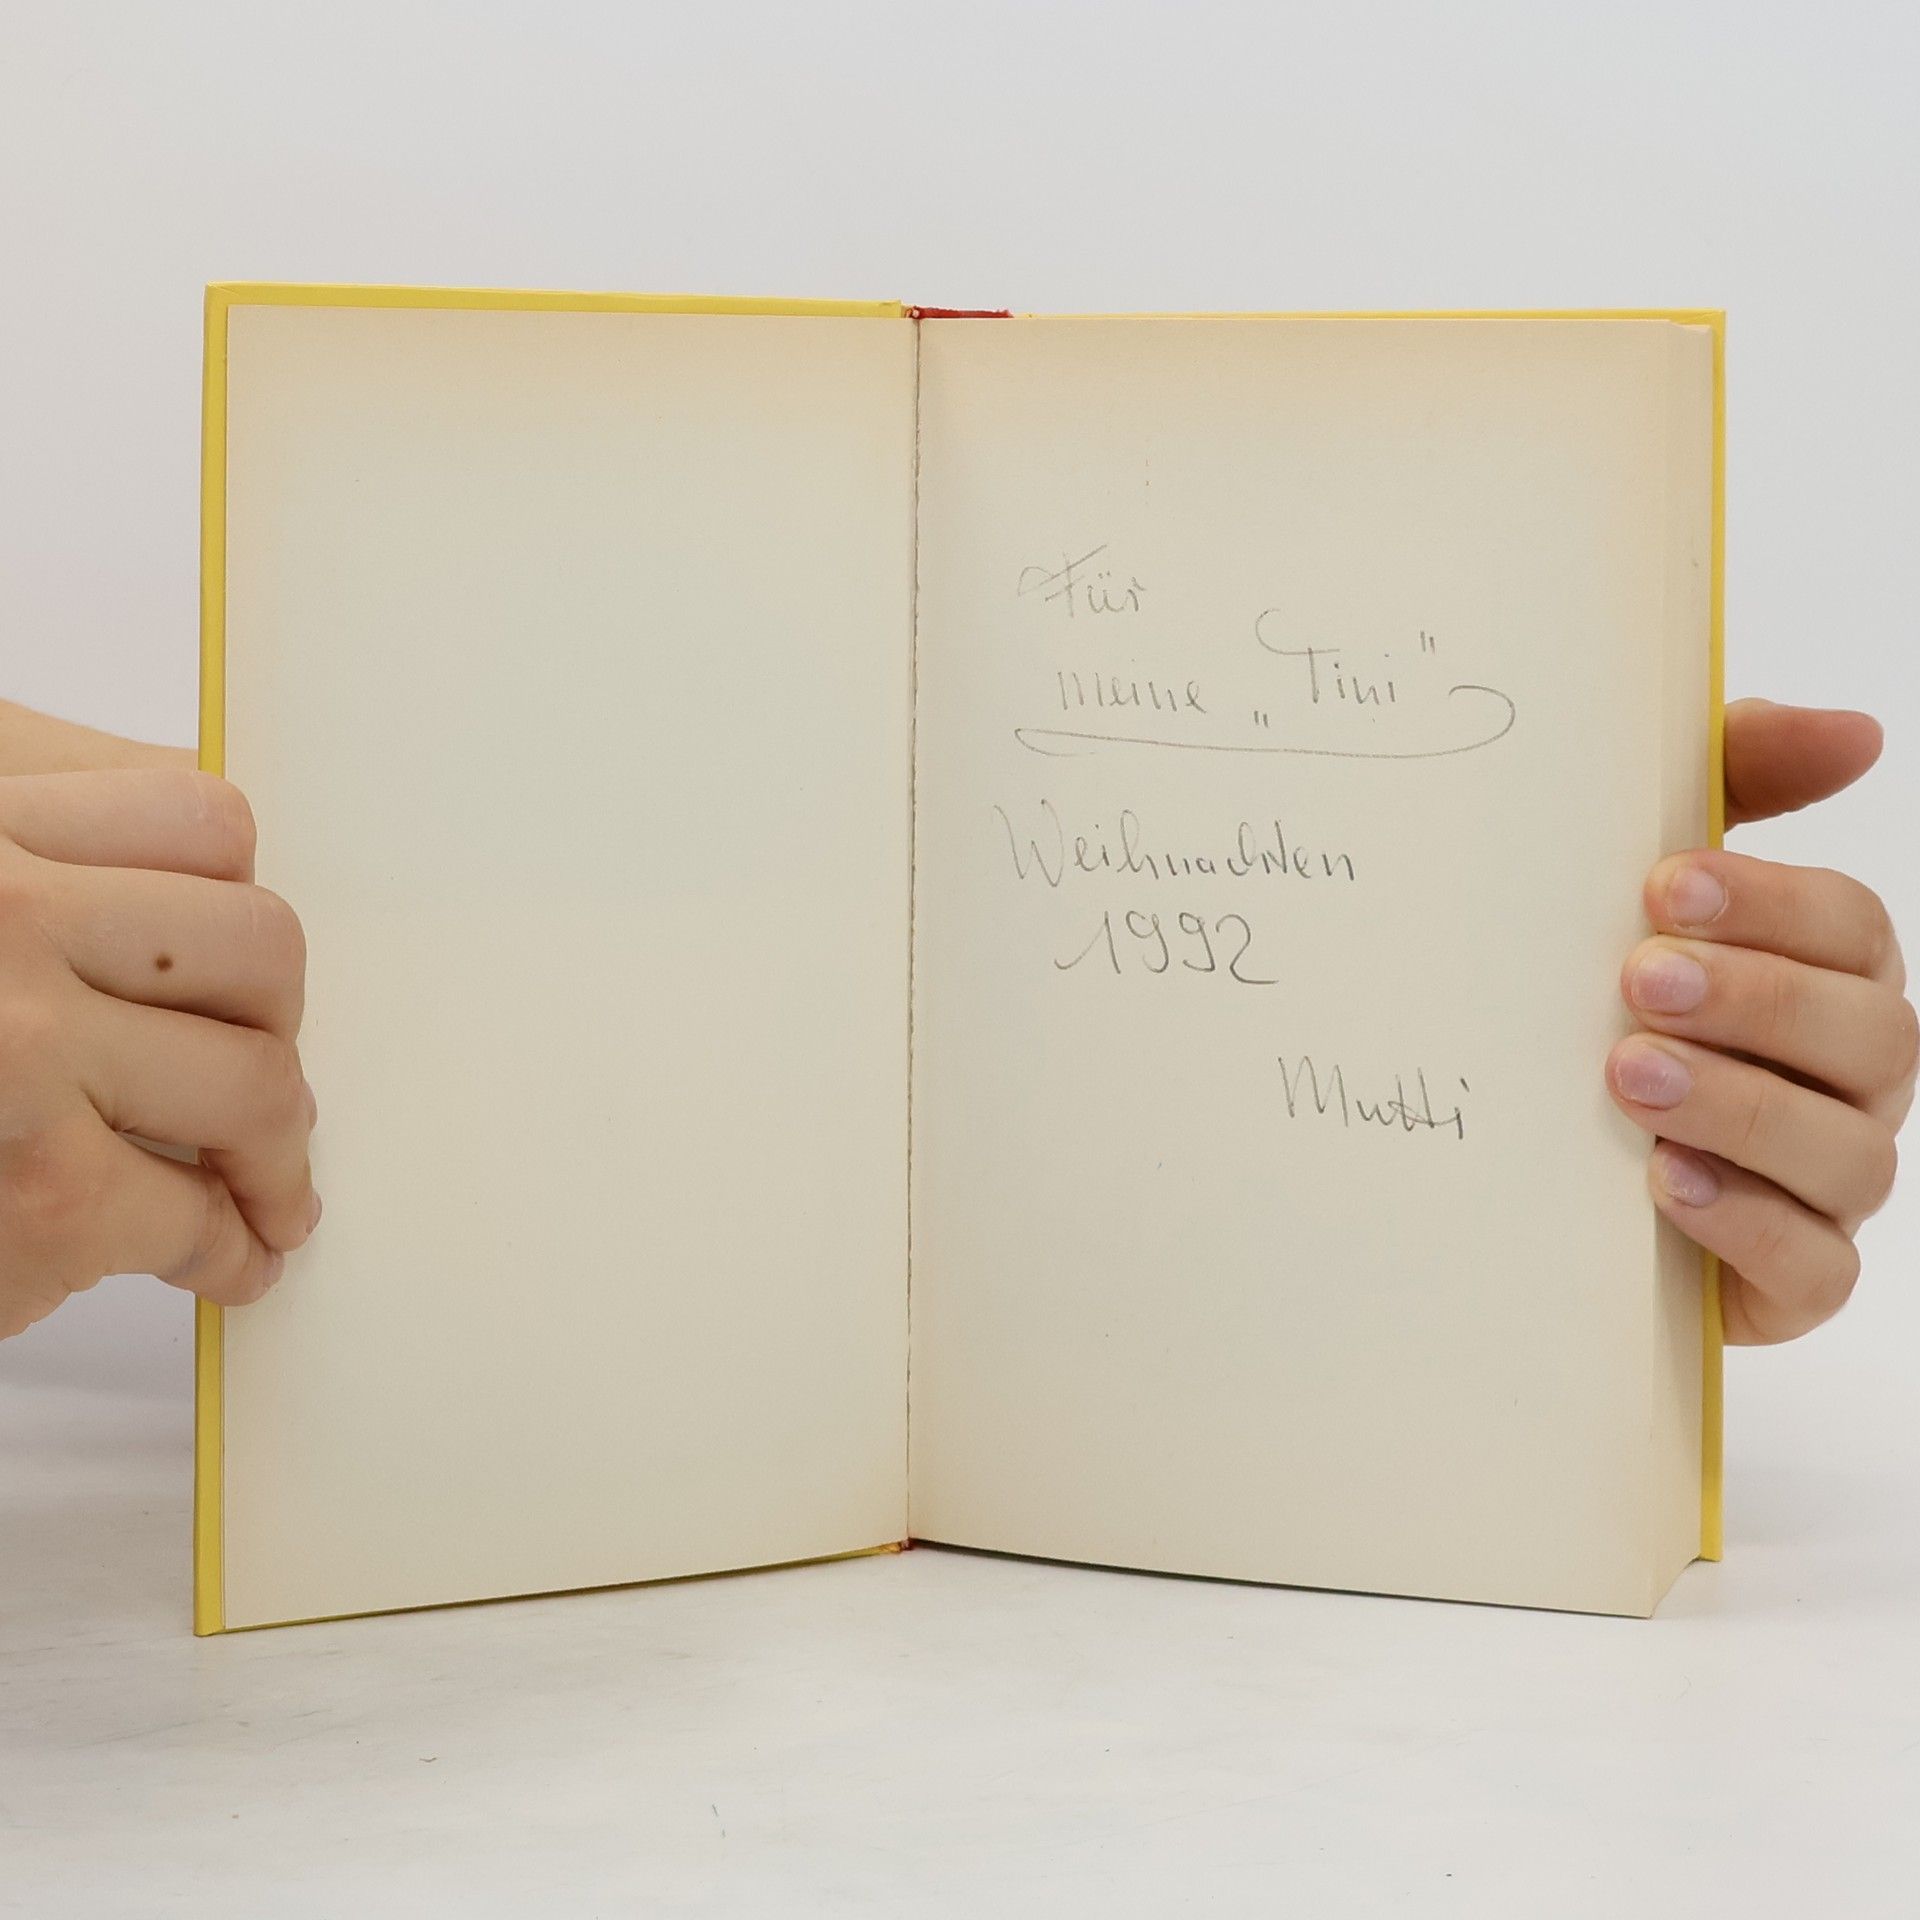 Für
meine „Tini"
Weihnachten
1992
Mutti